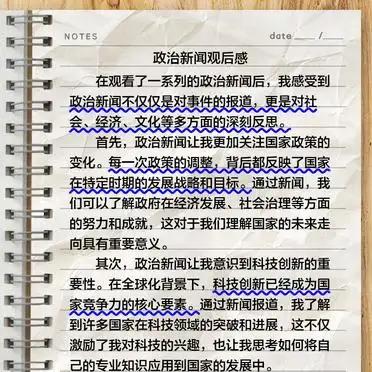 NOTES
date ___ /___
政治新闻观后感
在观看了一系列的政治新闻后，我感受到
政治新闻不仅仅是对事件的报道，更是对社
会、经济、文化等多方面的深刻反思。
首先，政治新闻让我更加关注国家政策的
变化。每一次政策的调整，背后都反映了国家
在特定时期的发展战略和目标。通过新闻，我
们可以了解政府在经济发展、社会治理等方面
的努力和成就，这对于我们理解国家的未来走
向具有重要意义。
其次，政治新闻让我意识到科技创新的重
要性。在全球化背景下，科技创新已经成为国
家竞争力的核心要素。通过新闻报道，我了解
到许多国家在科技领域的突破和进展，这不仅
激励了我对科技的兴趣，也让我思考如何将自
己的专业知识应用到国家的发展中。